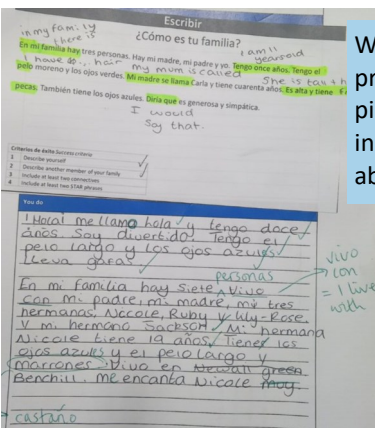 Escribir
in my family
there is
¿Cómo es tu familia?
I am 11
years old
En mi familia hay tres personas. Hay mi madre, mi padre y yo. Tengo once años. Tengo el
I have ... hair
my mum is called
She is tall + h
pelo moreno y los ojos verdes. Mi madre se llama Carla y tiene cuarenta años. Es alta y tiene
pecas. También tiene los ojos azules. Diría que es generosa y simpática.
I would
say that.
Criterios de éxito Success criteria
1 Describe yourself
2 Describe another member of your family
3 Include at least two connectives
4 Include at least two STAR phrases
You do
¡Hola! me llamo hola y tengo doce
años. Soy divertido. Tengo el
pelo largo y los ojos azules
lleva gafas.
personas
En mi familia hay siete, Vivo
con mi padre, mi madre, mis tres
hermanas, Niccole, Ruby y Lily-Rose.
Y mi hermano Jackson. Mi hermana
Nicole tiene 19 años. Tiene los
ojos azules y el pelo largo y
marrones. Vivo en Newall green
Benchill. me encanta Nicole muy.
castaño
vivo
con
= I live
with
W
pr
pi
in
ab